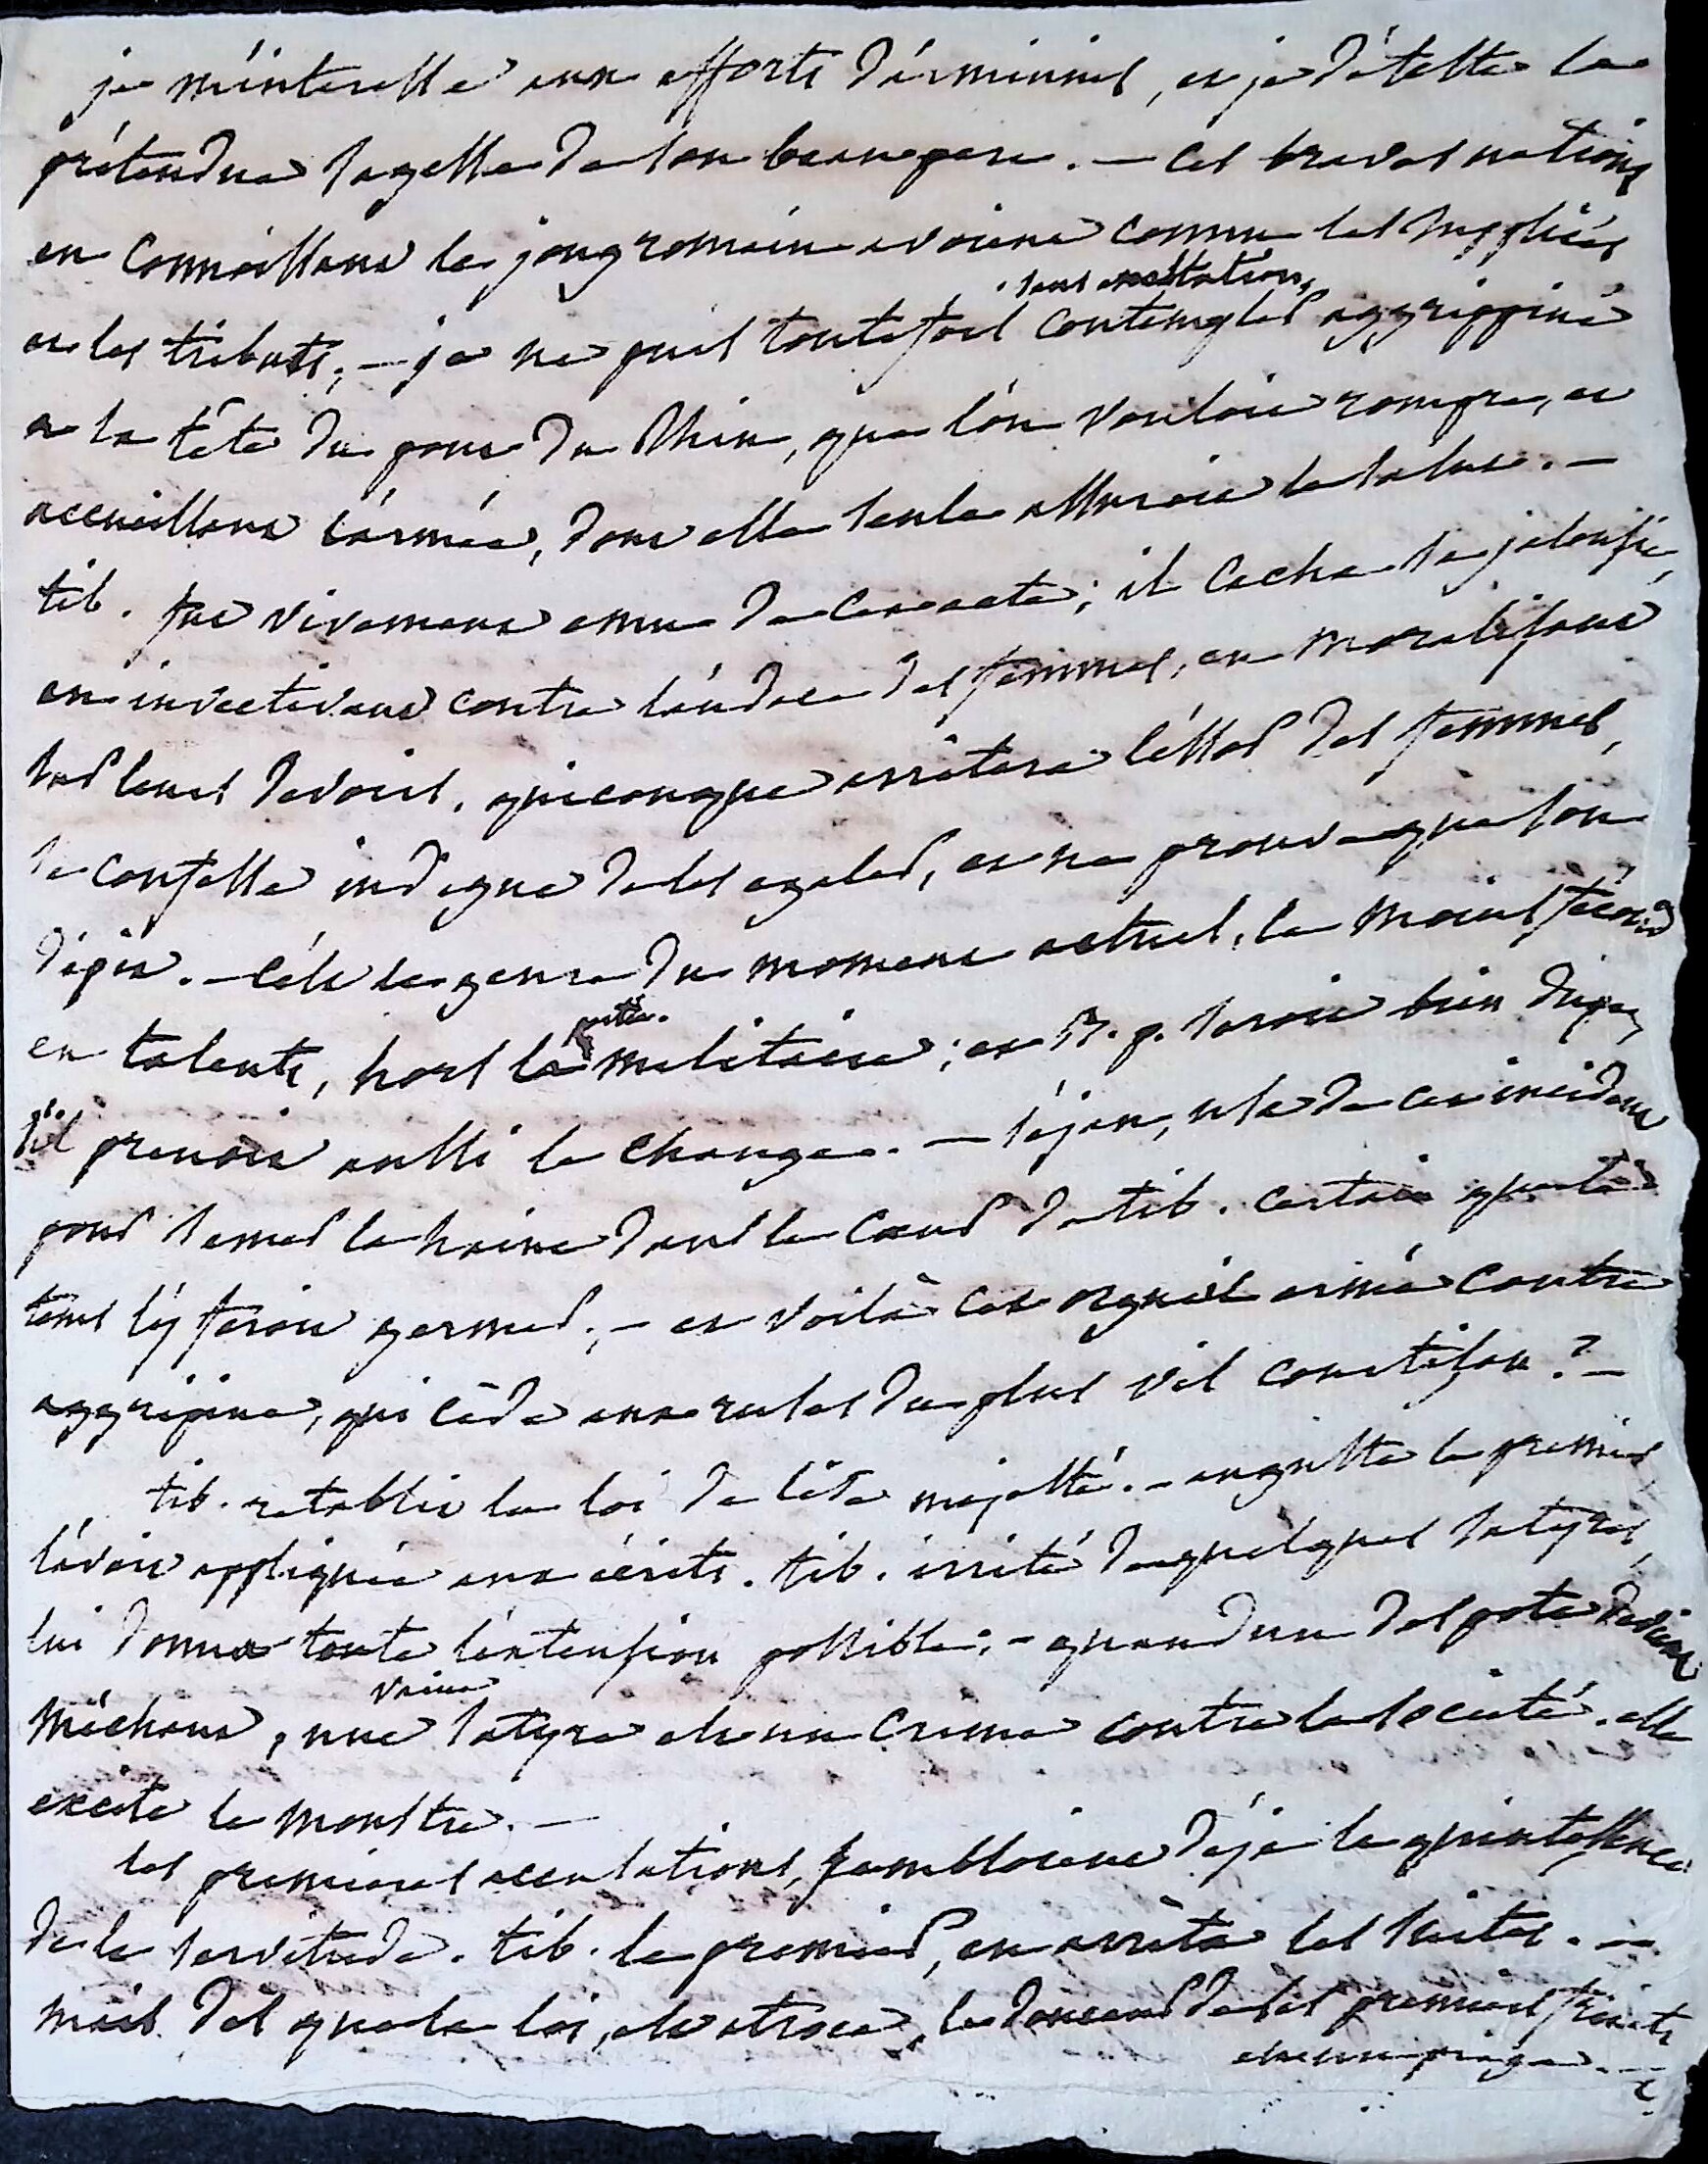 je m'interesse aux efforts d'arminius, et je déteste la
prétendue sagesse de son beau pere. — ces braves nations
en connoissant le joug romain avoient connu les supplices
et les tributs; — je ne puis toutefois contempler sans exaltation, aggrippine
a la tête du pont du Rhin, que l'on vouloit rompre, et
accueillant l'armée, dont elle seule assuroit le salut. —
tib. fut vivement emu de cet acte; il cacha sa jalousie,
en invectivant contre l'audace des femmes, en moralisant
sur leurs devoirs. quiconque arrêtera l'essor des femmes,
se confesse indigne de les egaler, et ne prouve que son
dépit. — c'est le genre du moment actuel, le moins fécond
en talents, hors la partie militaire; et B. p. seroit bien dupe,
s'il prenoit aussi le change. — séjan, usa de cet incident
pour semer la haine dans le cœur de tib. certain que le
tems l'y feroit germer; — et voilà cet orgueil armé contre
aggripine, qui cède aux ruses du plus vil courtisan? —
tib. retablit la loi de lèse majesté. — auguste le premier
l'avoit appliquée aux écrits. tib. irrité de quelques satyres,
lui donna toute l'extension possible; — quand un despote devient
méchant, une vaine satyre est un crime contre la société. elle
excite le monstre. —
les premieres accusations, sembloient déja la quintessence
de la servitude. tib. le premier, en arrêta les suites. —
mais dès que la loi, est atroce, la douceur de ses premiers traits
est un piege. —